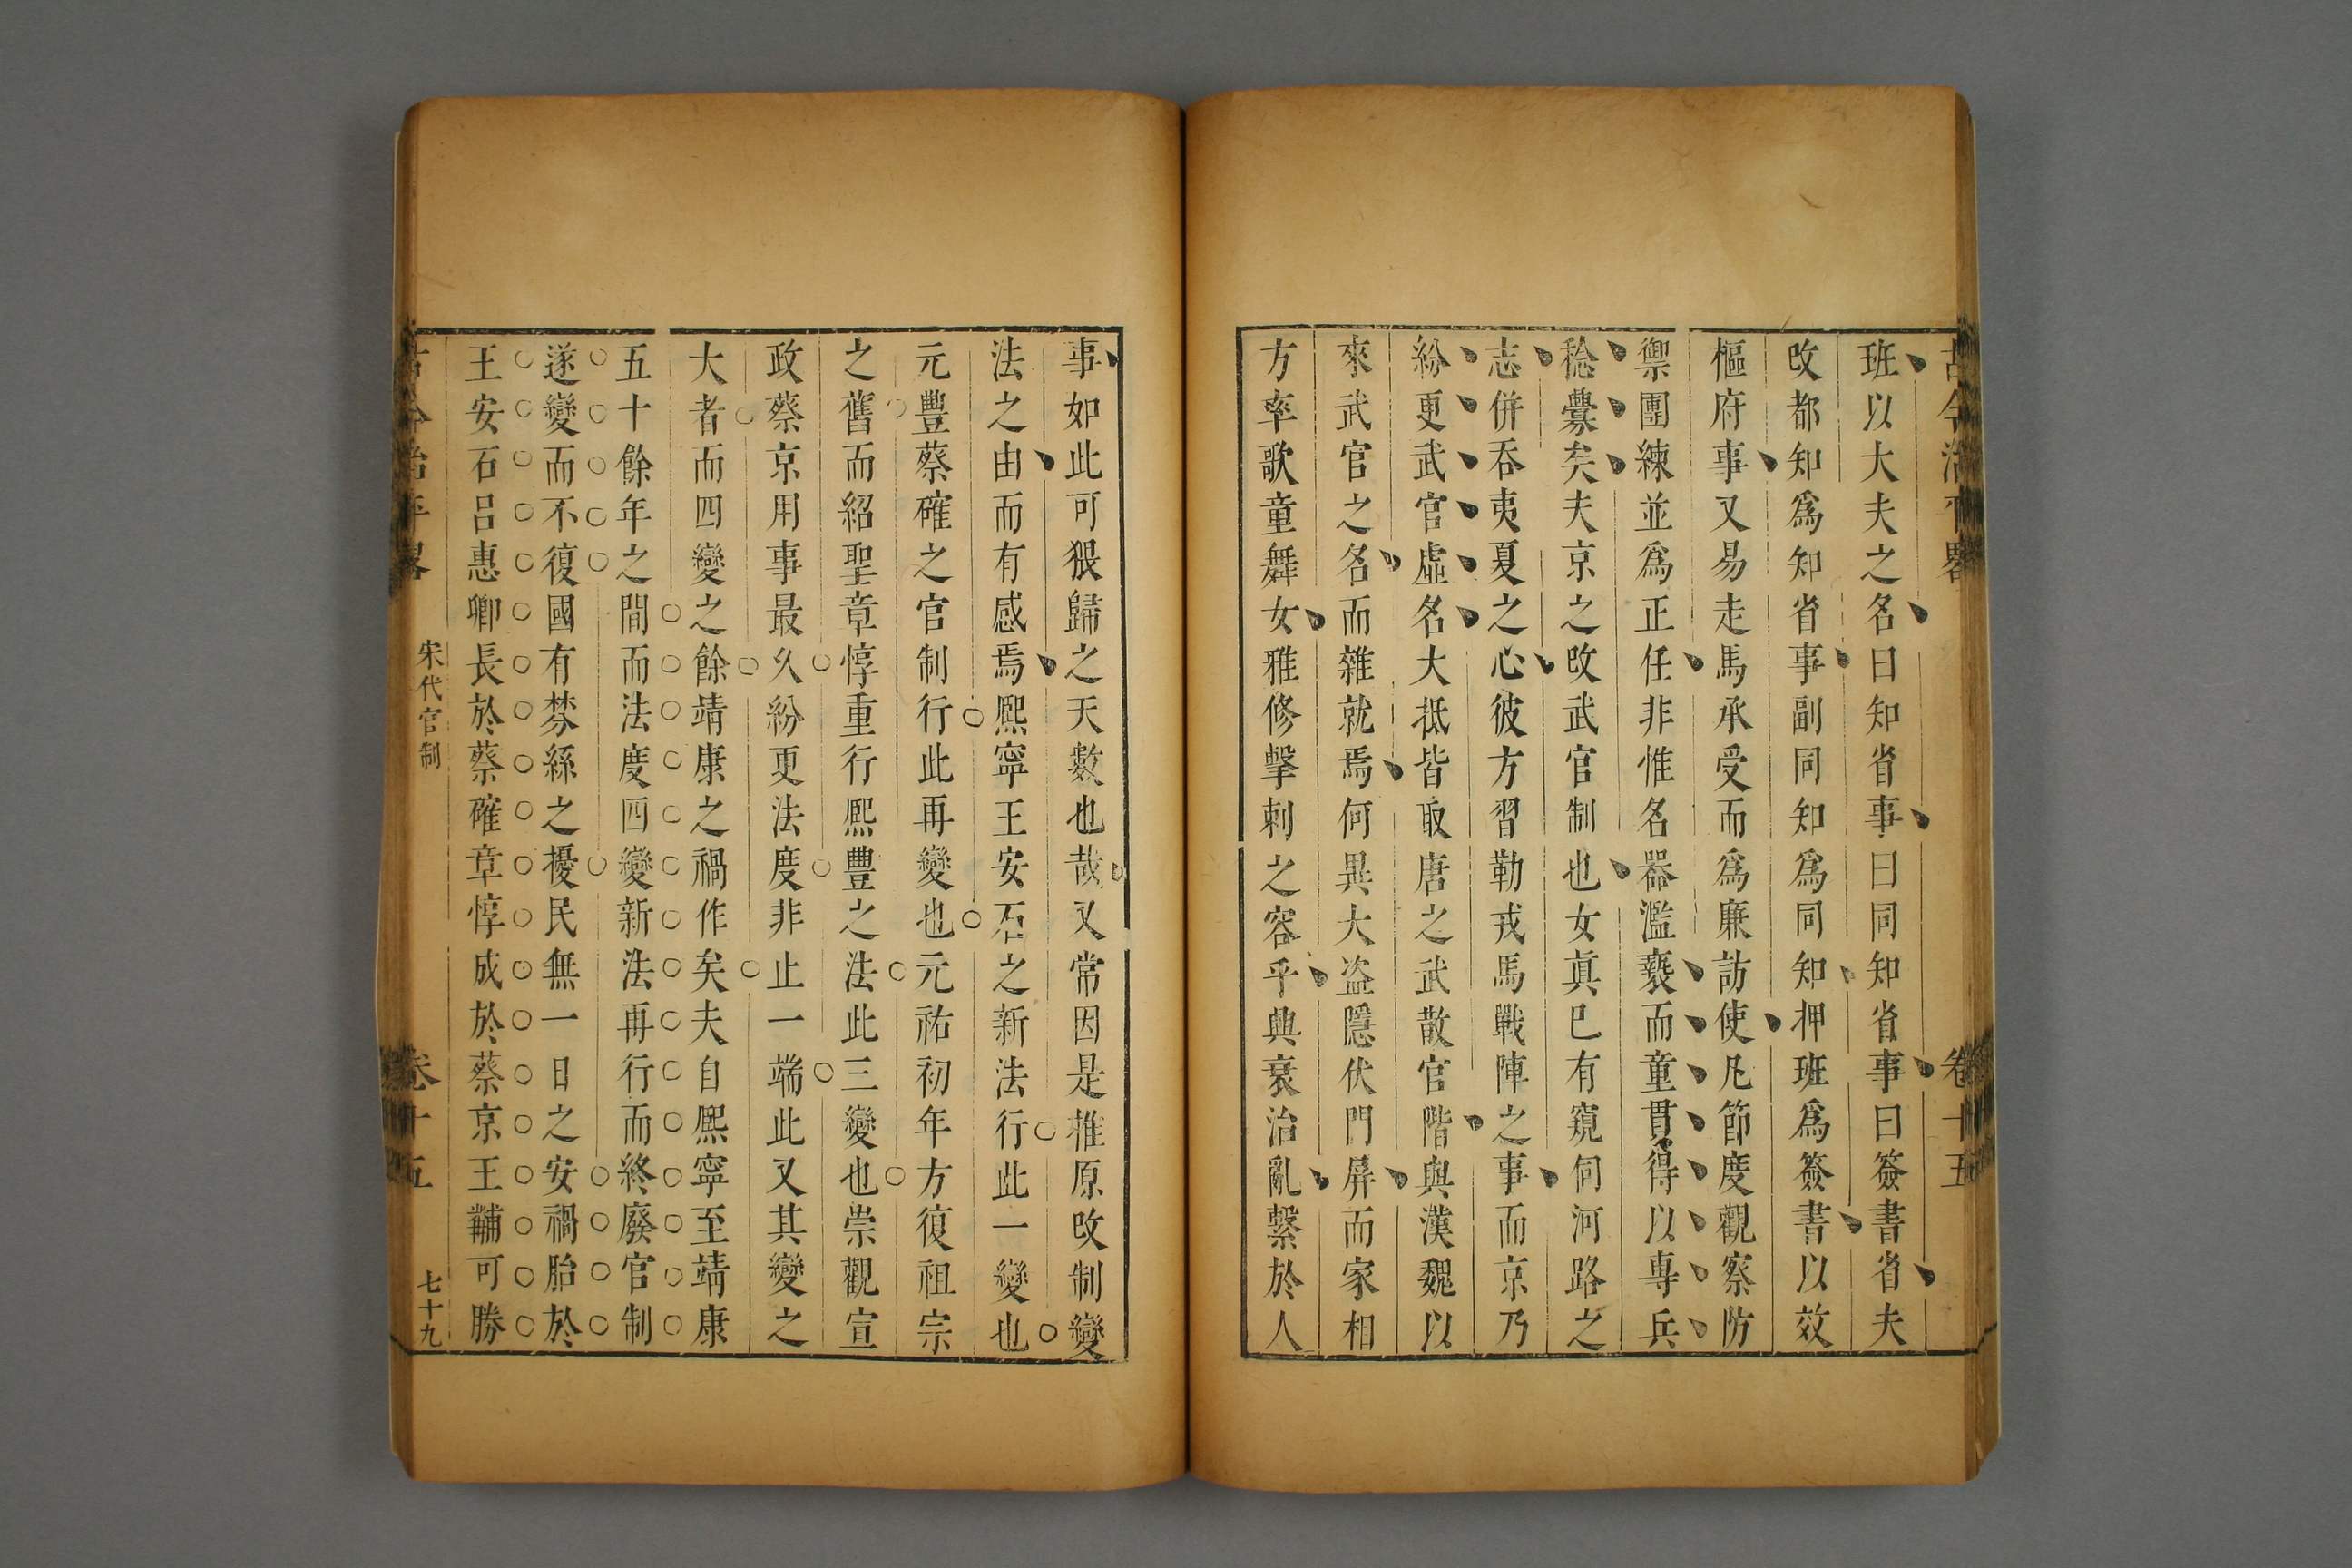 古今治平畧 卷十五
班以大夫之名曰知省事曰同知省事曰簽書省夫
改都知爲知省事副同知爲同知押班爲簽書以效
樞府事又易走馬承受而爲廉訪使凡節度觀察防
禦團練並爲正任非惟名器濫褻而童貫得以專兵
稔釁矣夫京之改武官制也女眞已有窺伺河路之
志併吞夷夏之心彼方習勒戎馬戰陣之事而京乃
紛更武官虛名大抵皆取唐之武散官階與漢魏以
來武官之名而雜就焉何異大盗隱伏門屏而家相
方率歌童舞女雅修擊刺之容乎興衰治亂繫於人
事如此可猥歸之天數也哉又常因是推原改制變
法之由而有感焉熈寧王安石之新法行此一變也
元豐蔡確之官制行此再變也元祐初年方復祖宗
之舊而紹聖章惇重行熈豐之法此三變也崇觀宣
政蔡京用事最久紛更法度非止一端此又其變之
大者而四變之餘靖康之禍作矣夫自熈寧至靖康
五十餘年之間而法度四變新法再行而終廢官制
遂變而不復國有棼絲之擾民無一日之安禍胎於
王安石呂惠卿長於蔡確章惇成於蔡京王黼可勝
古今治平畧 宋代官制 卷十五 七十九